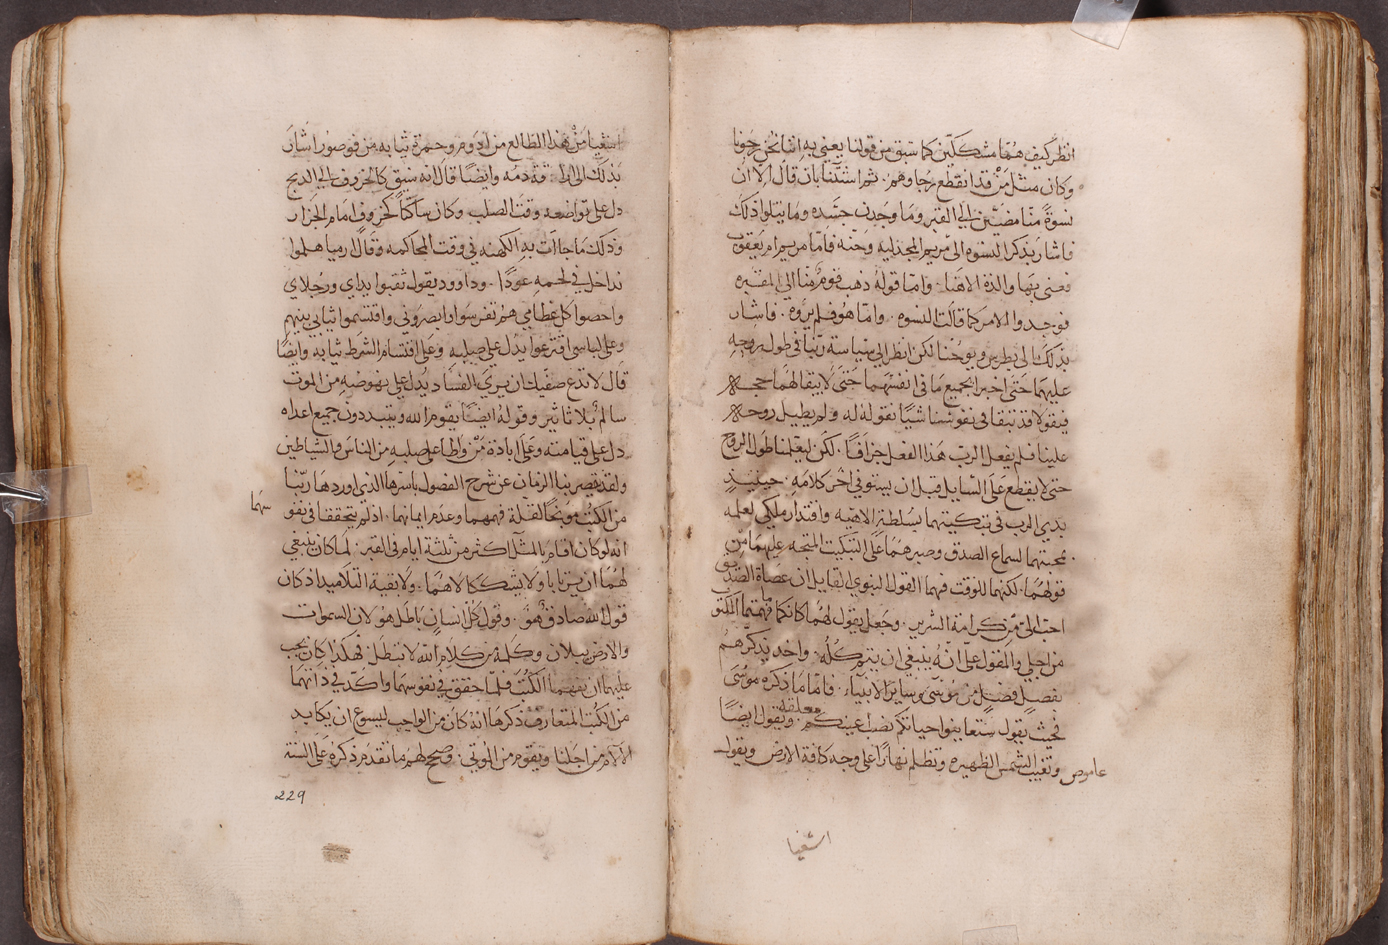 انظر كيف هما متشككين كما سبق من قولنا يعني به اننا نحن رجونا
وكان مثل من قد انقطع رجاوهم. ثم استثنا بان قال الا ان
نسوة منا مضين الى القبر وما وجدن جسده وما يتلوا ذلك
فاشار بذكر النسوه الى مريم المجدليه وحنه فاما مريم ام يعقوب
فعنى بها والدة الاهنا. واما قوله ذهب قوم منا الى المقبره
فوجدوا الامر كما قالت النسوه. واما هو فلم يروه. فاشار
بذلك الى بطرس ويوحنا لكن انظر الى سياسة ربنا في طول روحه
عليهما حتى اخبرا بجميع ما في انفسهما حتى لا يبقا لهما حجه
فيقولا قد تبقا في نفوسنا شيا نقوله له ولم يطيل روحه
علينا فلم يفعل الرب هذا الفعل جزافا. لكن ليعلمنا طول الروح
حتى لا يقطع على السايل قبل ان يستوفي اخر كلامه. حينيذ
بدى الرب في تبكيتهما بسلطة الاهيه واقتدار ملكي لعلمه
بمحبتهما لسماع الصدق وصبرهما على التبكيت المتجه عليهما من
قولهما. لكنهما للوقت فهما القول النبوي القايل ان عصاة الصديق
احب الي من كرامة الشرير. وجعل يقول لهما كانكما ما فهمتما المكتوب
من اجلي والمقول على انه ينبغي ان يتم كله. واخد يذكرهم
بفصل فصل من موسى وساير الانبياء. فاما ما ذكره موسى
فحيث يقول ستعاينوا حياتكم معلقة نصب اعينكم. ويقول ايضا
عاموص وتغيب الشمس الظهيره وتظلم نهارا على وجه كافة الارض ويقول
اشعيا
اشعيا من هذا الطالع من ادوم وحمرة ثيابه من فوصور اشار
بذلك الى اراقة دمه وايضا قال انه سيق كالخروف الى الدبح
دل على تواضعه وقت الصلب وكان ساكتا كخروف امام الجزار
وذلك ما جاات به الكهنه في وقت المحاكمه وقال ارميا هلموا
نداخل في لحمه عودا. وداوود يقول ثقبوا يداي ورجلاي
واحصوا كل عظامي هم تفرسوا وابصروني واقتسموا ثيابي بينهم
وعلى لباسي اقترعوا يدل على صلبه وعلى اقتسام الشرط ثيابه وايضا
قال لا تدع صفيك ان يرى الفساد يدل على نهوضه من الموت
سالم بلا تاثير وقوله ايضا يقوم الله ويتبددون جميع اعداه
دل على قيامته وعلى ابادة من واطا على صلبه من الناس والشياطين
ولقد يقصر بنا الزمان عن شرح الفصول باسرها الذي اوردها ربنا
من الكتب موبخا لقلة فهمهما وعدم ايمانهما. اذ لم يتحققا في نفو
سهما
انه لو كان اقام بالمثل اكثر من ثلثة ايام في القبر. لما كان ينبغي
لهما ان يرتابا ولا يتشككا لاهما. ولا بقية التلاميد اذ كان
قول الله صادق هو. وقول كل انسان باطل هو لان السموات
والارض يبلان وكلمة من كلام الله لا تبطل فهكذا كان يجب
عليهما ان يفهما الكتب فلما حقق في نفوسهما واكد في ذاتهما
من الكتب المتعارف ذكرها انه كان من الواجب ليسوع ان يكابد
الالام من اجلنا ويقوم من الموتى. وصح لهم ما تقدم ذكره على السنة
229